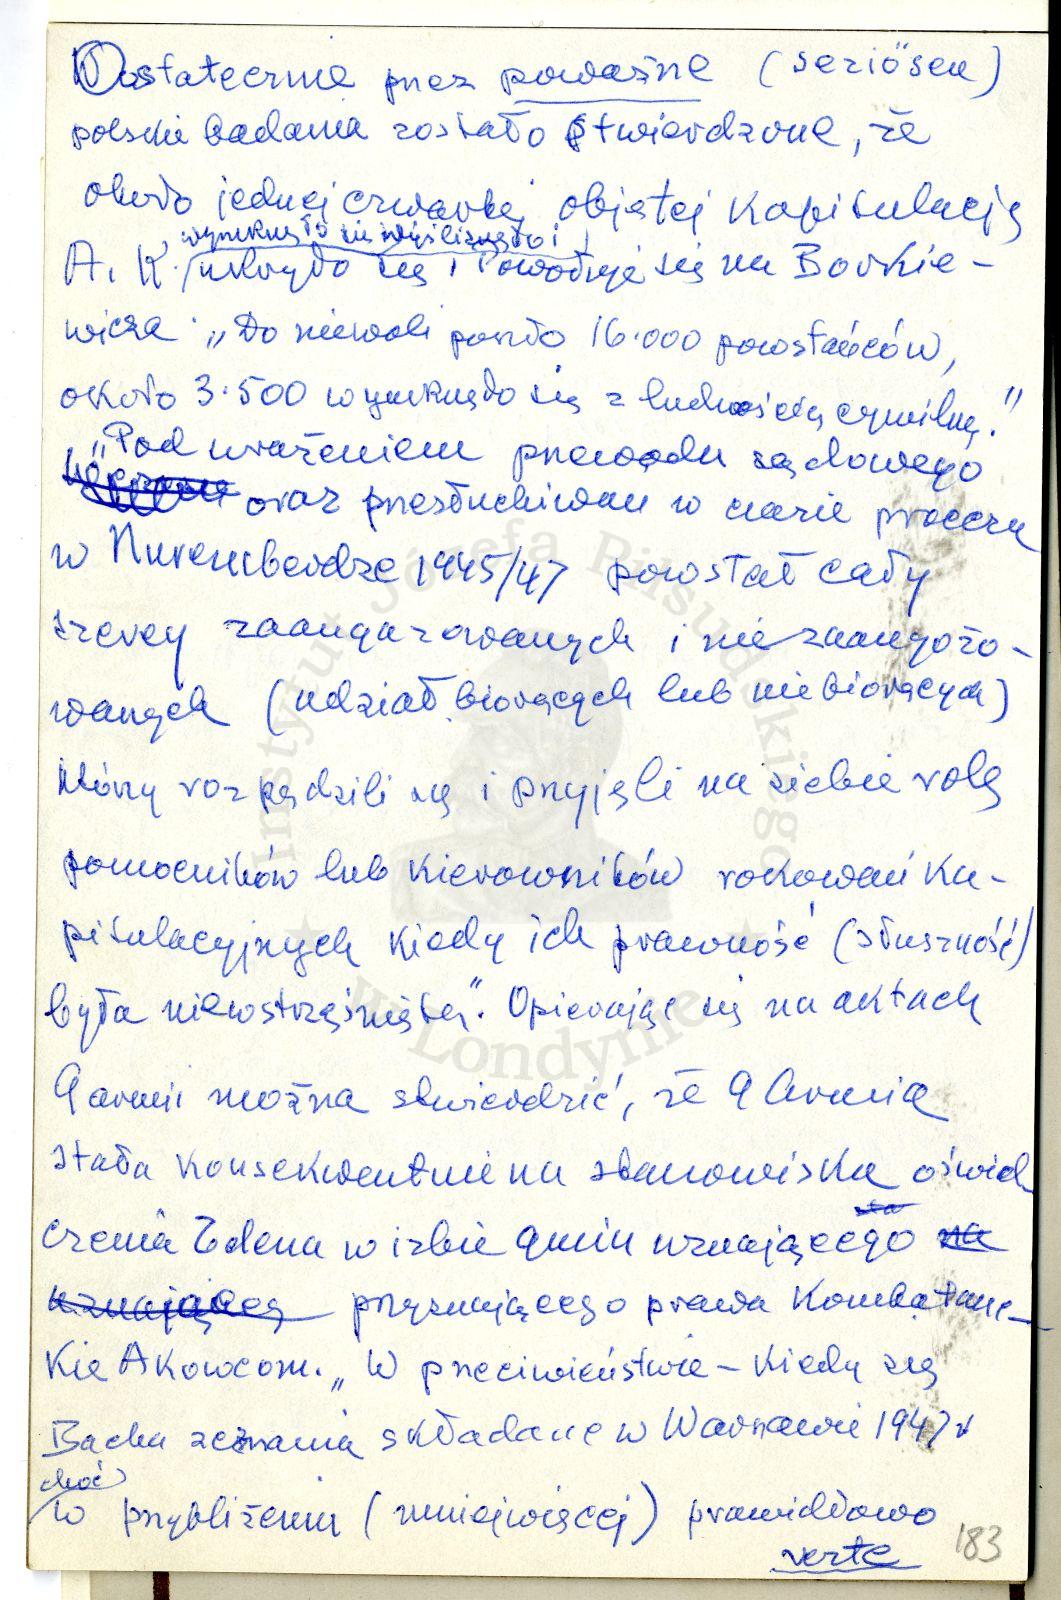 Ostatecznie przez poważne (seriösen)
polskie badania zostało stwierdzone, że
około jednej czwartej objętej kapitulacją
wymknęło się wyśliznęło i
A.K. ukryło się i powołuje się na Borkie-
wicza „Do niewoli poszło 16.000 powstańców,
około 3.500 wymknęło się z ludnością cywilną."
„Pod wrażeniem przewodu sądowego
oraz przesłuchiwań w czasie procesu
w Nurembergdze 1945/47 powstał cały
szereg zaangażowanych i nie zaangażo-
wanych (udział biorących lub nie biorących)
którzy rozpędzili się i przyjęli na siebie rolę
pomocników lub kierowników rokowań ka-
pitulacyjnych kiedy ich prawność (słuszność)
była niewstrząśnięta". Opierając się na aktach
9 armii można stwierdzić, że 9 Armia
stała konsekwentnie na stanowisku oświad-
czenia Edena w izbie gmin uznającego na
uznającą przyznającego prawa Kombatanc-
kie Akowcom. „W przeciwieństwie – kiedy się
Bacha zeznania składane w Warszawie 1947 r
choć
w przybliżeniu (mniejwięcej) prawidłowo
verte
183
Instytut Józefa Piłsudskiego
w Londynie